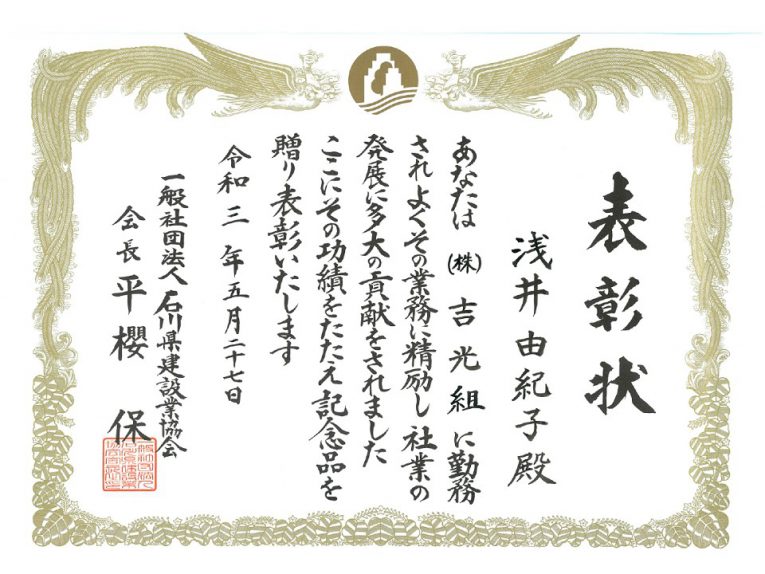 表彰状
浅井由紀子殿
あなたは(株)吉光組に勤務
されよくその業務に精励し社業の
発展に多大の貢献をされました
ここにその功績をたたえ記念品を
贈り表彰いたします
令和三年五月二十七日
一般社団法人石川県建設業協会
会長平櫻保